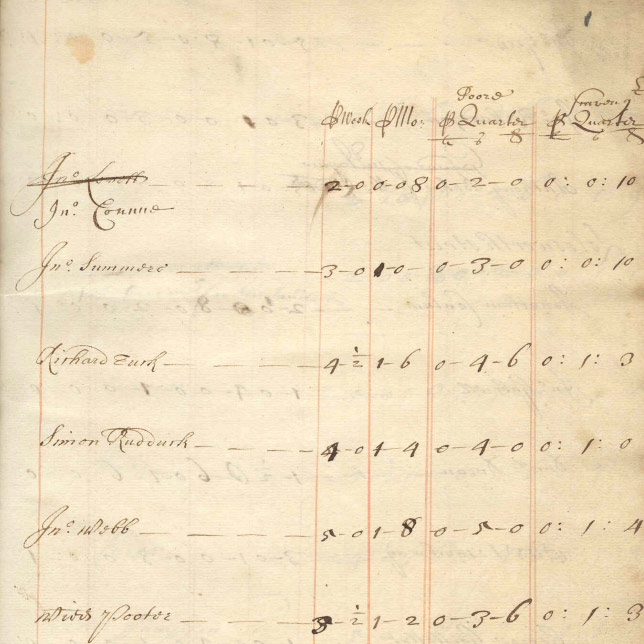 1
Poore Scaven
℘ Week ℘ Mo: ℘ Quarter ℘ Quarter
£ s d £ s d
Jno. Lovell — — — 2-0 0-08 0-2-0 0: 0: 10
Jno. Connue
Jno. Summers — — — 3-0 1-0- 0-3-0 0: 0: 10
Richard Turk — — — 4 ½ 1-6 0-4-6 0: 1: 3
Simon Rudduck — — — 4-0 1-4 0-4-0 0: 1: 0
Jno. Webb — — — 5-0 1-8 0-5-0 0: 1: 4
Pooter — — — 3 ½ 1-2 0-3-6 0: 1: 3